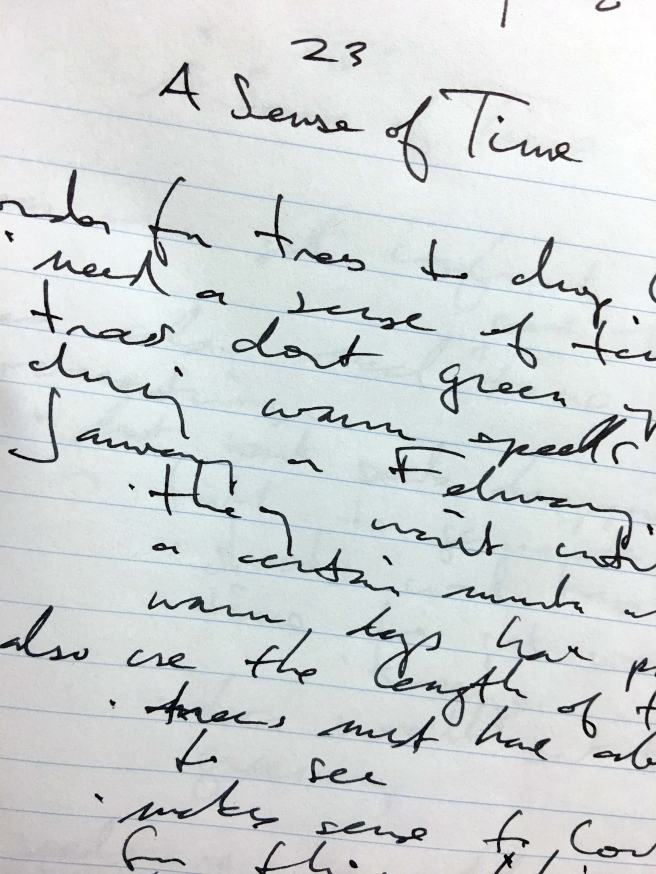 23
A Sense of Time
for trees to drop
need a sense of
trees don't green
during warm spells
January or February
· they wait until
a certain number
warm days have
also use the length of
· trees must have
to see
· makes sense to
for this